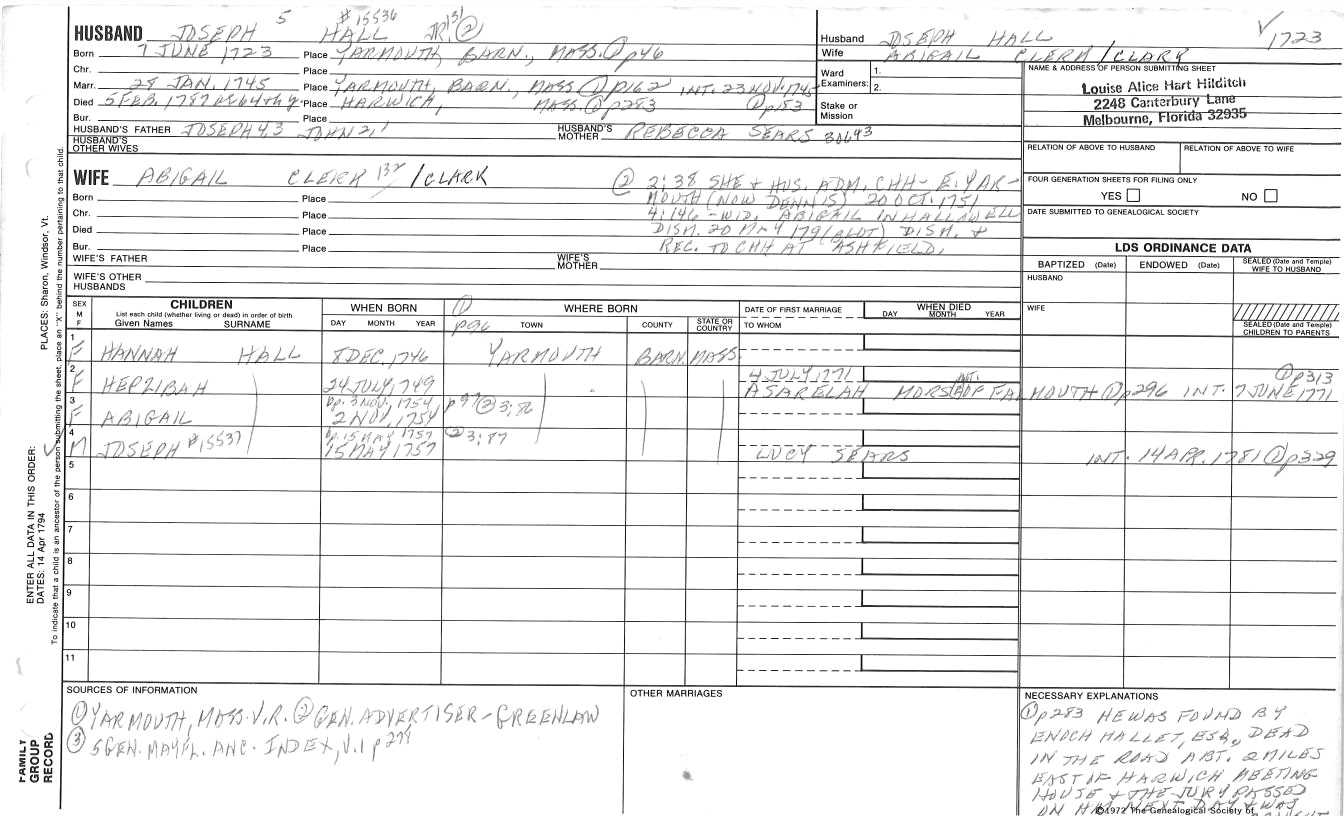 5 #15536
HUSBAND JOSEPH HALL JR. 131 ②
Born 7 JUNE 1723 Place YARMOUTH, BARN., MASS. ① p46
Chr. Place
Marr. 28 JAN. 1745 Place YARMOUTH, BARN., MASS ① p162 INT. 23 NOV. 1745
Died 5 FEB. 1787 Place HARWICH, MASS. ① p283 ① p153
Bur. Place
HUSBAND'S FATHER JOSEPH 4,3 JOHN 2,1 HUSBAND'S MOTHER REBECCA SEARS 30643
HUSBAND'S OTHER WIVES
WIFE ABIGAIL CLERK 132 /CLARK
Born Place
Chr. Place
Died Place
Bur. Place
② 2:38 SHE & HUS. ADM. CHH - E. YAR-
MOUTH (NOW DENNIS) 20 OCT. 1751
4:146 - WID. ABIGAIL IN HALLOWELL
DISM. 20 MAY 1791 DISM. &
REC. TO CHH AT ASHFIELD.
WIFE'S FATHER WIFE'S MOTHER
WIFE'S OTHER HUSBANDS
Husband JOSEPH HALL ✓ 1723
Wife ABIGAIL CLERK /CLARK
Ward Examiners: 1. 2.
Stake or Mission
NAME & ADDRESS OF PERSON SUBMITTING SHEET
Louise Alice Hart Hilditch
2248 Canterbury Lane
Melbourne, Florida 32935
RELATION OF ABOVE TO HUSBAND RELATION OF ABOVE TO WIFE
FOUR GENERATION SHEETS FOR FILING ONLY
YES NO
DATE SUBMITTED TO GENEALOGICAL SOCIETY
LDS ORDINANCE DATA
BAPTIZED (Date) ENDOWED (Date) SEALED (Date and Temple) WIFE TO HUSBAND
HUSBAND
WIFE
SEALED (Date and Temple) CHILDREN TO PARENTS
SEX M F
CHILDREN
List each child (whether living or dead) in order of birth
Given Names SURNAME
WHEN BORN
DAY MONTH YEAR
① p96
WHERE BORN
TOWN COUNTY STATE OR COUNTRY
DATE OF FIRST MARRIAGE
TO WHOM
WHEN DIED
DAY MONTH YEAR
1 F HANNAH HALL 8 DEC. 1746 YARMOUTH BARN. MASS.
2 F HEPZIBAH 24 JULY, 1749 4 JULY 1771 INT. ① p313
ASARELAH MORSE OF FALMOUTH ① p296 INT. 7 JUNE 1771
3 F ABIGAIL bp. 3 NOV. 1754 p97 ② 3:86
2 NOV. 1754
4 ✓ M JOSEPH #15537 bp. 15 MAY 1757 ② 3:87
15 MAY 1757 LUCY SEARS INT. 14 APR. 1781 ① p329
5
6
7
8
9
10
11
SOURCES OF INFORMATION
① YARMOUTH, MASS. V.R. ② GEN. ADVERTISER - GREENLAW
③ 5 GEN. MAYFL. ANC. INDEX, V.1 p 278
OTHER MARRIAGES
NECESSARY EXPLANATIONS
① p283 HE WAS FOUND BY
ENOCH HALLET, ESQ., DEAD
IN THE ROAD ABT. 2 MILES
EAST OF HARWICH MEETING
HOUSE & THE JURY PASSED
ON HIM NEXT DAY & WAS
©1972 The Genealogical Society of
PLACES: Sharon, Windsor, Vt.
ENTER ALL DATA IN THIS ORDER:
DATES: 14 Apr 1794
To indicate that a child is an ancestor of the person submitting the sheet, place an "X" behind the number pertaining to that child.
FAMILY GROUP RECORD